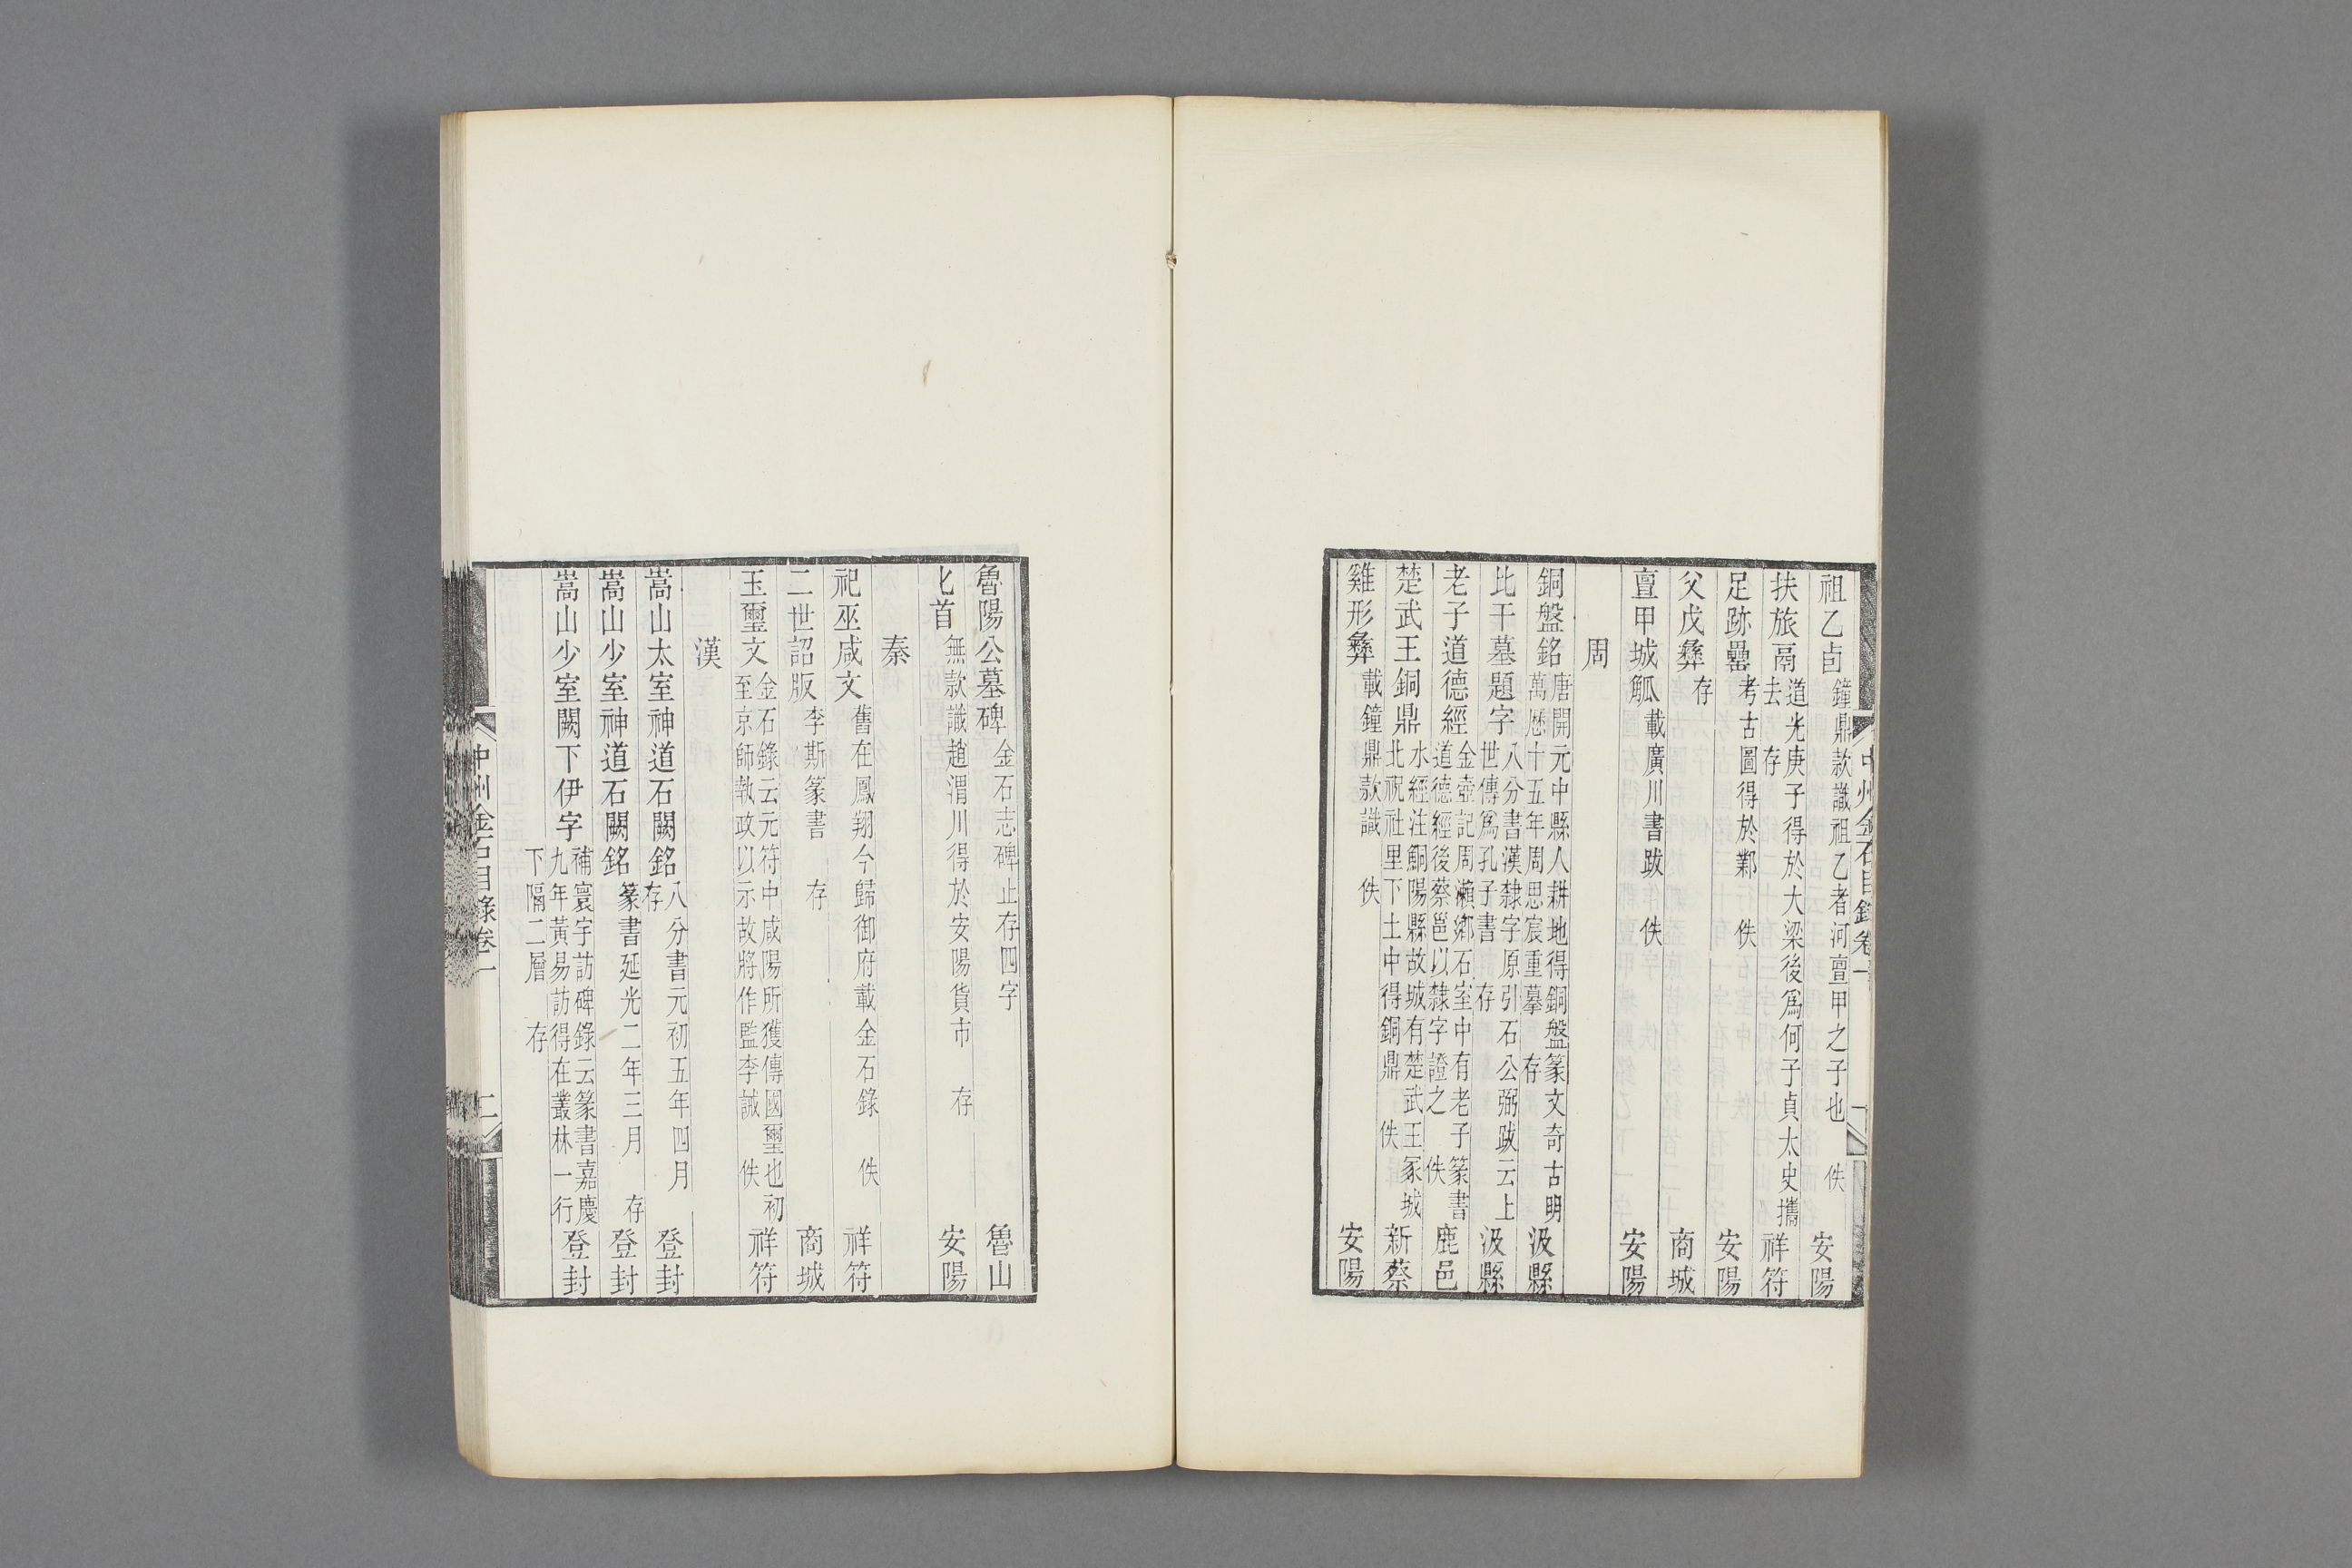 祖乙卣 鐘鼎款識祖乙者河亶甲之子也 佚 安陽
扶旅鬲 道光庚子得於大梁後爲何子貞太史攜
去 存 祥符
足跡罍 考古圖得於鄴 佚 安陽
父戊彝 存 商城
亶甲城觚 載廣川書跋 佚 安陽
周
銅盤銘 唐開元中縣人耕地得銅盤篆文奇古明
萬歷十五年周思宸重摹 存 汲縣
比干墓題字 八分書漢隸字原引石公弼跋云上
世傳爲孔子書 存 汲縣
老子道德經 金壺記周瀨鄉石室中有老子篆書
道德經後蔡邕以隸字證之 佚 鹿邑
楚武王銅鼎 水經注鮦陽縣故城有楚武王冢城
北祝社里下土中得銅鼎 佚 新蔡
雞形彝 載鐘鼎款識 佚 安陽
中州金石目錄卷一
魯陽公墓碑 金石志碑止存四字 魯山
匕首 無款識趙渭川得於安陽貨市 存 安陽
秦
祀巫咸文 舊在鳳翔今歸御府載金石錄 佚 祥符
二世詔版 李斯篆書 存 商城
玉璽文 金石錄云元符中咸陽所獲傳國璽也初
至京師執政以示故將作監李誡 佚 祥符
漢
嵩山太室神道石闕銘 八分書元初五年四月
存 登封
嵩山少室神道石闕銘 篆書延光二年三月 存 登封
嵩山少室闕下伊字 補寰宇訪碑錄云篆書嘉慶
九年黃易訪得在叢林一行
下隔二層 存 登封
中州金石目錄卷一 二